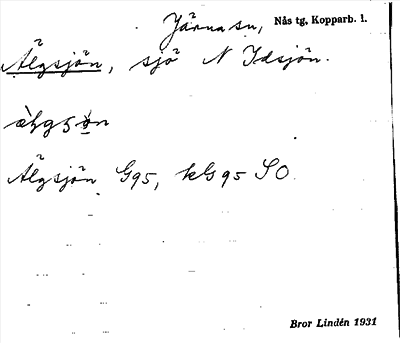 Järna sn, Nås tg, Kopparb. l.
Älgsjön, sjö N Idsjön.
Älgsjön G95, kG95 SO.
Bror Lindén 1931